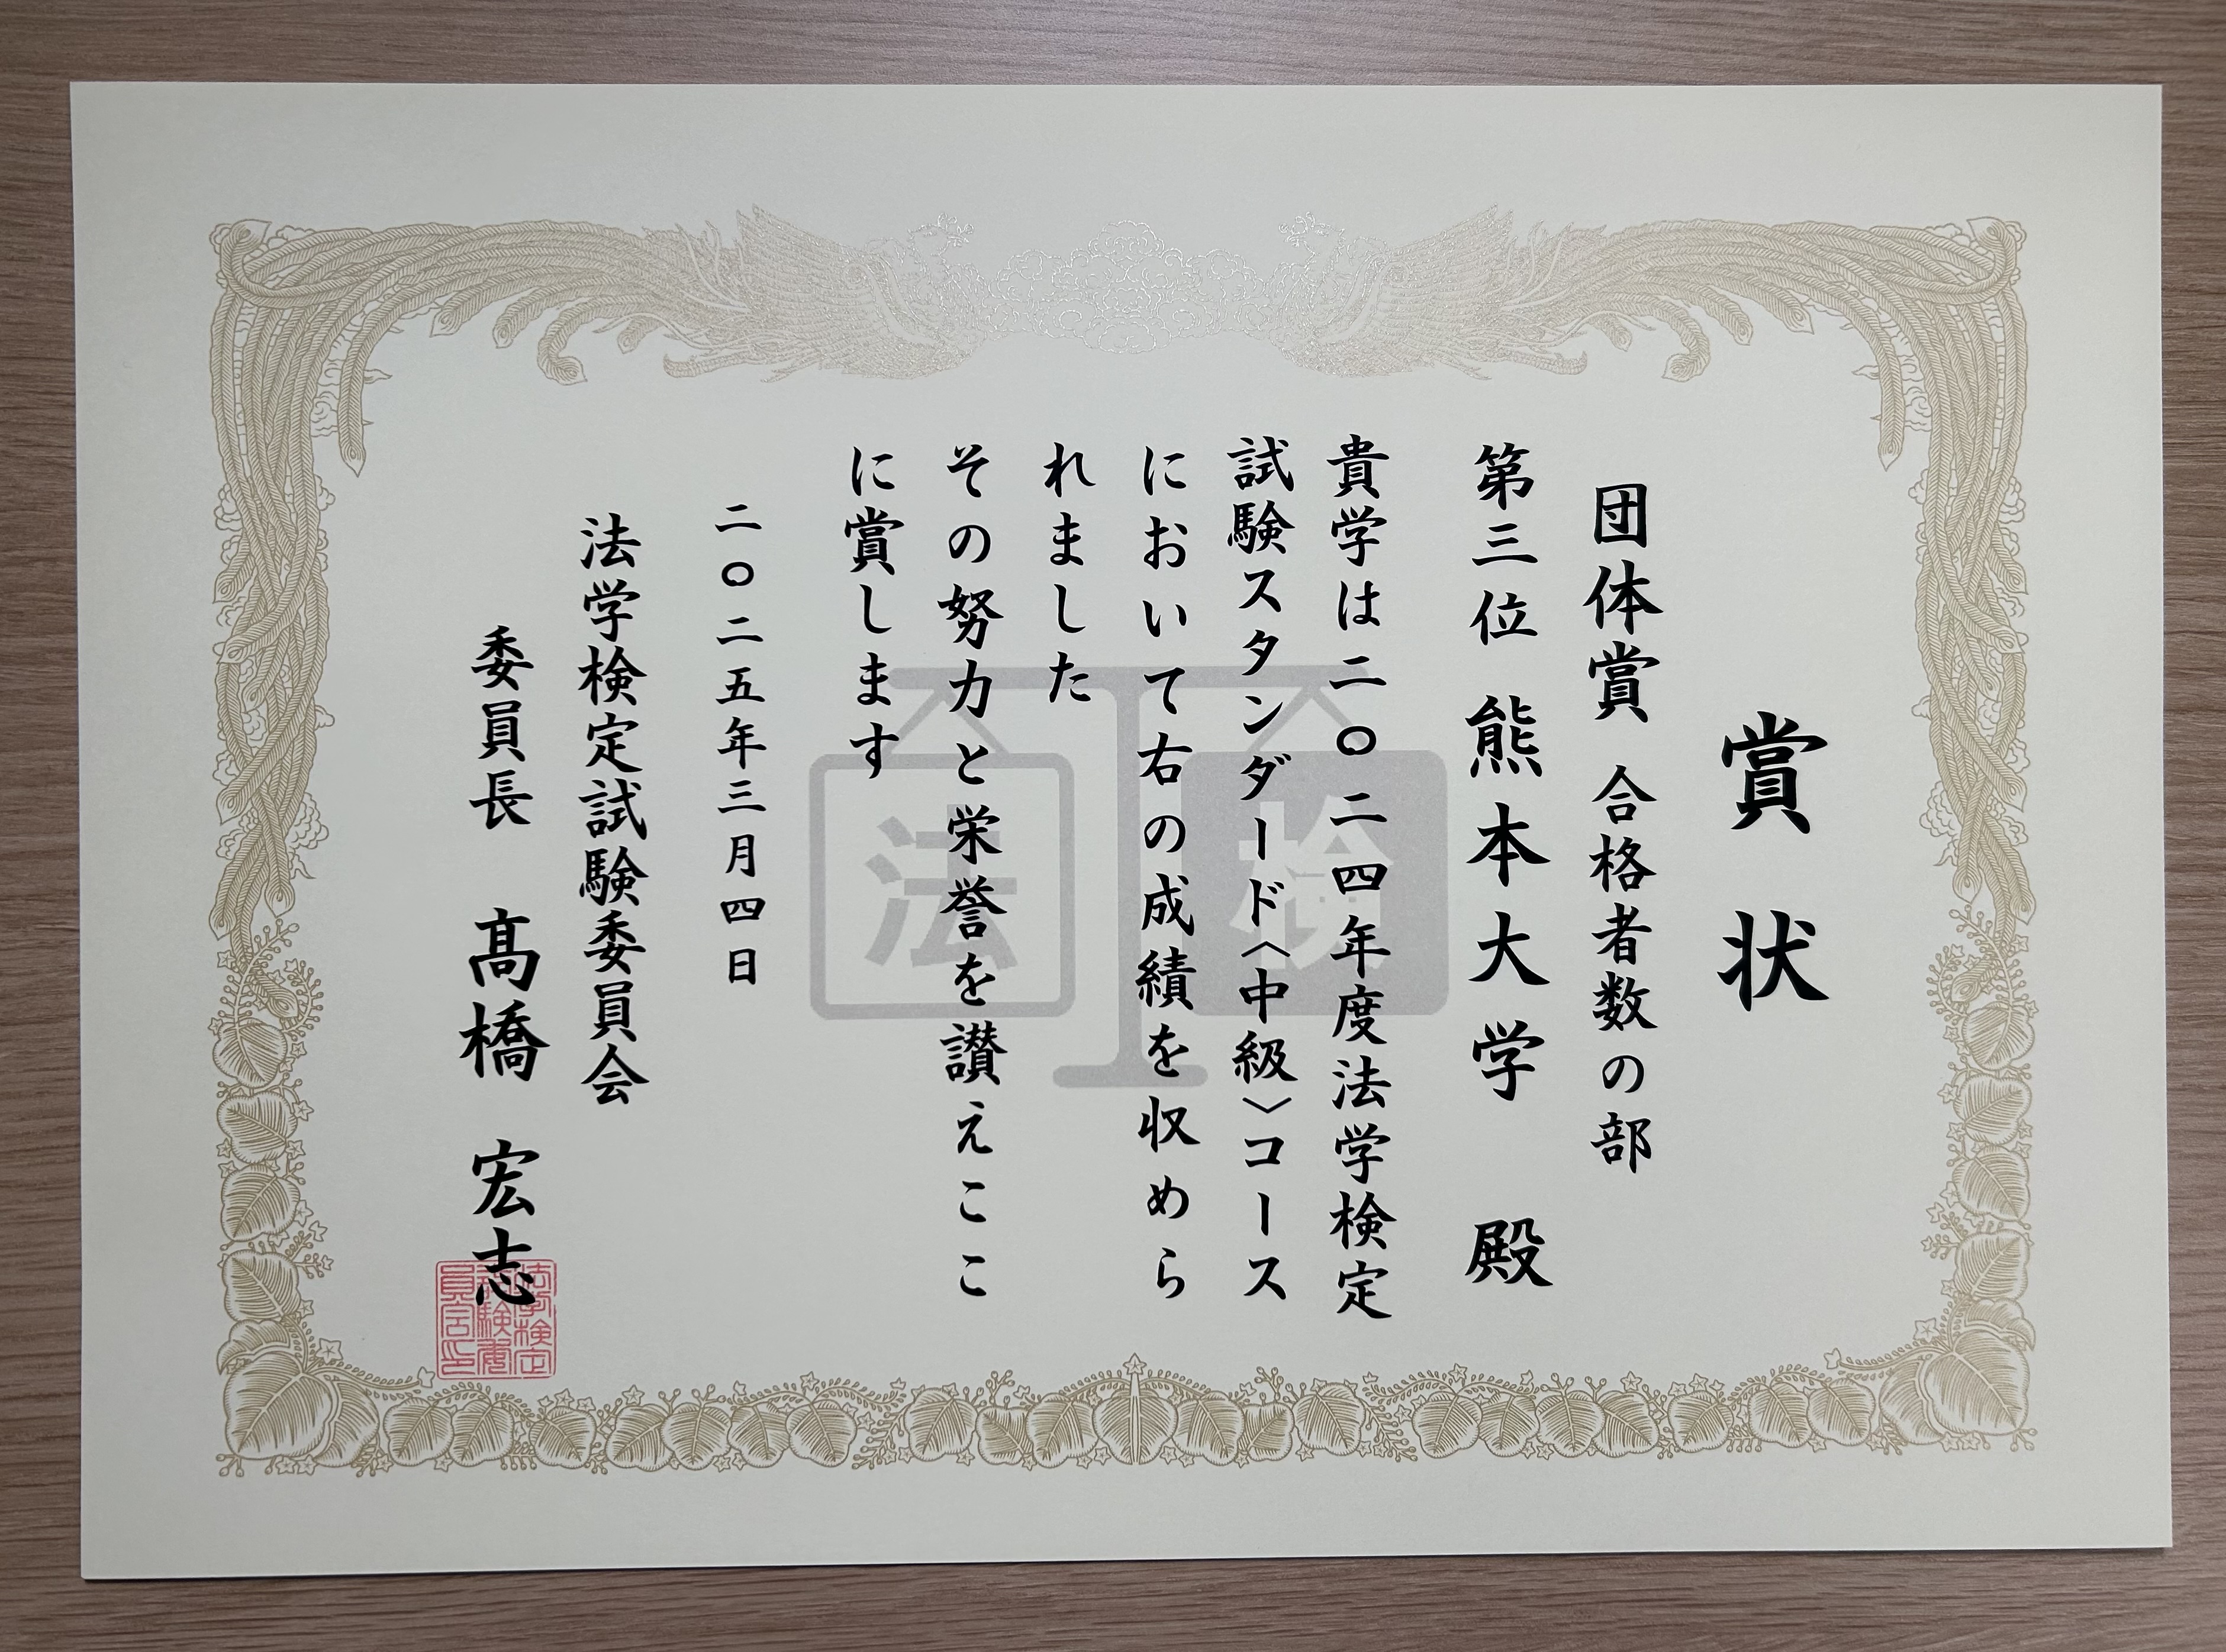 賞状
団体賞 合格者数の部
第三位 熊本大学 殿
貴学は二〇二四年度法学検定
試験スタンダード〈中級〉コース
において右の成績を収めら
れました
その努力と栄誉を讃えここ
に賞します
二〇二五年三月四日
法学検定試験委員会
委員長 髙橋 宏志
法 検